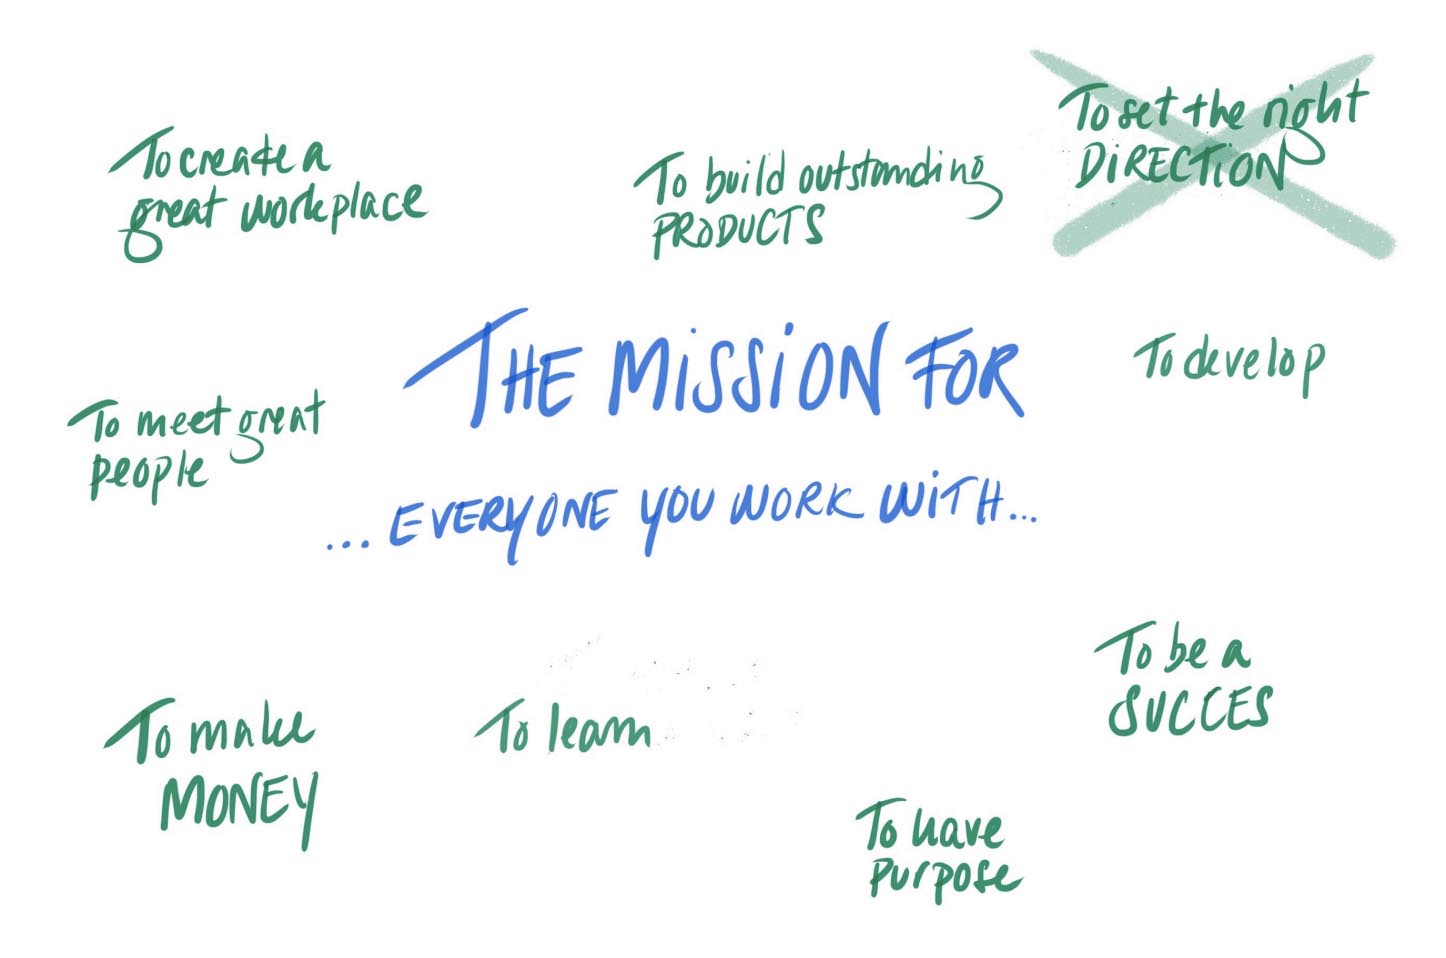 To create a
great workplace
To build outstanding
PRODUCTS
To set the right
DIRECTION
THE MISSION FOR
To develop
To meet great
people
... EVERYONE YOU WORK WITH...
To be a
SUCCES
To make
MONEY
To learn
To have
purpose